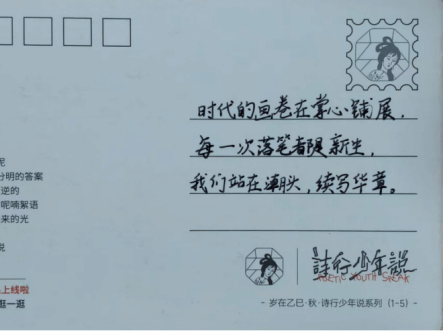 时代的画卷在掌心铺展，
每一次落笔都是新生，
我们站在潮头，续写华章。
呢
分明的答案
逆的
呢喃絮语
来的光
说
上线啦
逛一逛
詩行少年說
POETIC YOUTH SPEAK
- 岁在乙巳·秋·诗行少年说系列（1-5）-